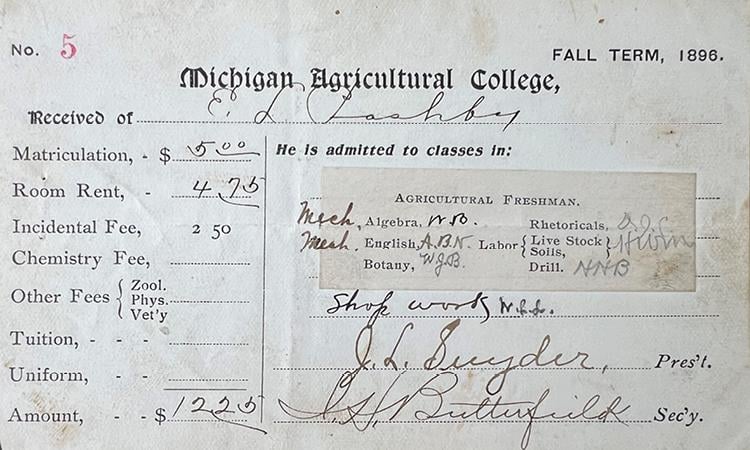 No. 5
FALL TERM, 1896.
Michigan Agricultural College,
Received of E. L. Pashby
Matriculation, - $ 5.00
Room Rent, - 4.75
Incidental Fee, 2 50
Chemistry Fee,
Other Fees { Zool. Phys. Vet'y
Tuition, - - -
Uniform, - -
Amount, - - $ 12 25
He is admitted to classes in:
AGRICULTURAL FRESHMAN.
Mech. Algebra, W.B. Rhetoricals,
Mech. English, A.B.N. Labor { Live Stock Soils, }
Botany, W.J.B. Drill. HNB
Shop work,
J. L. Snyder, Pres't.
I. H. Butterfield Sec'y.